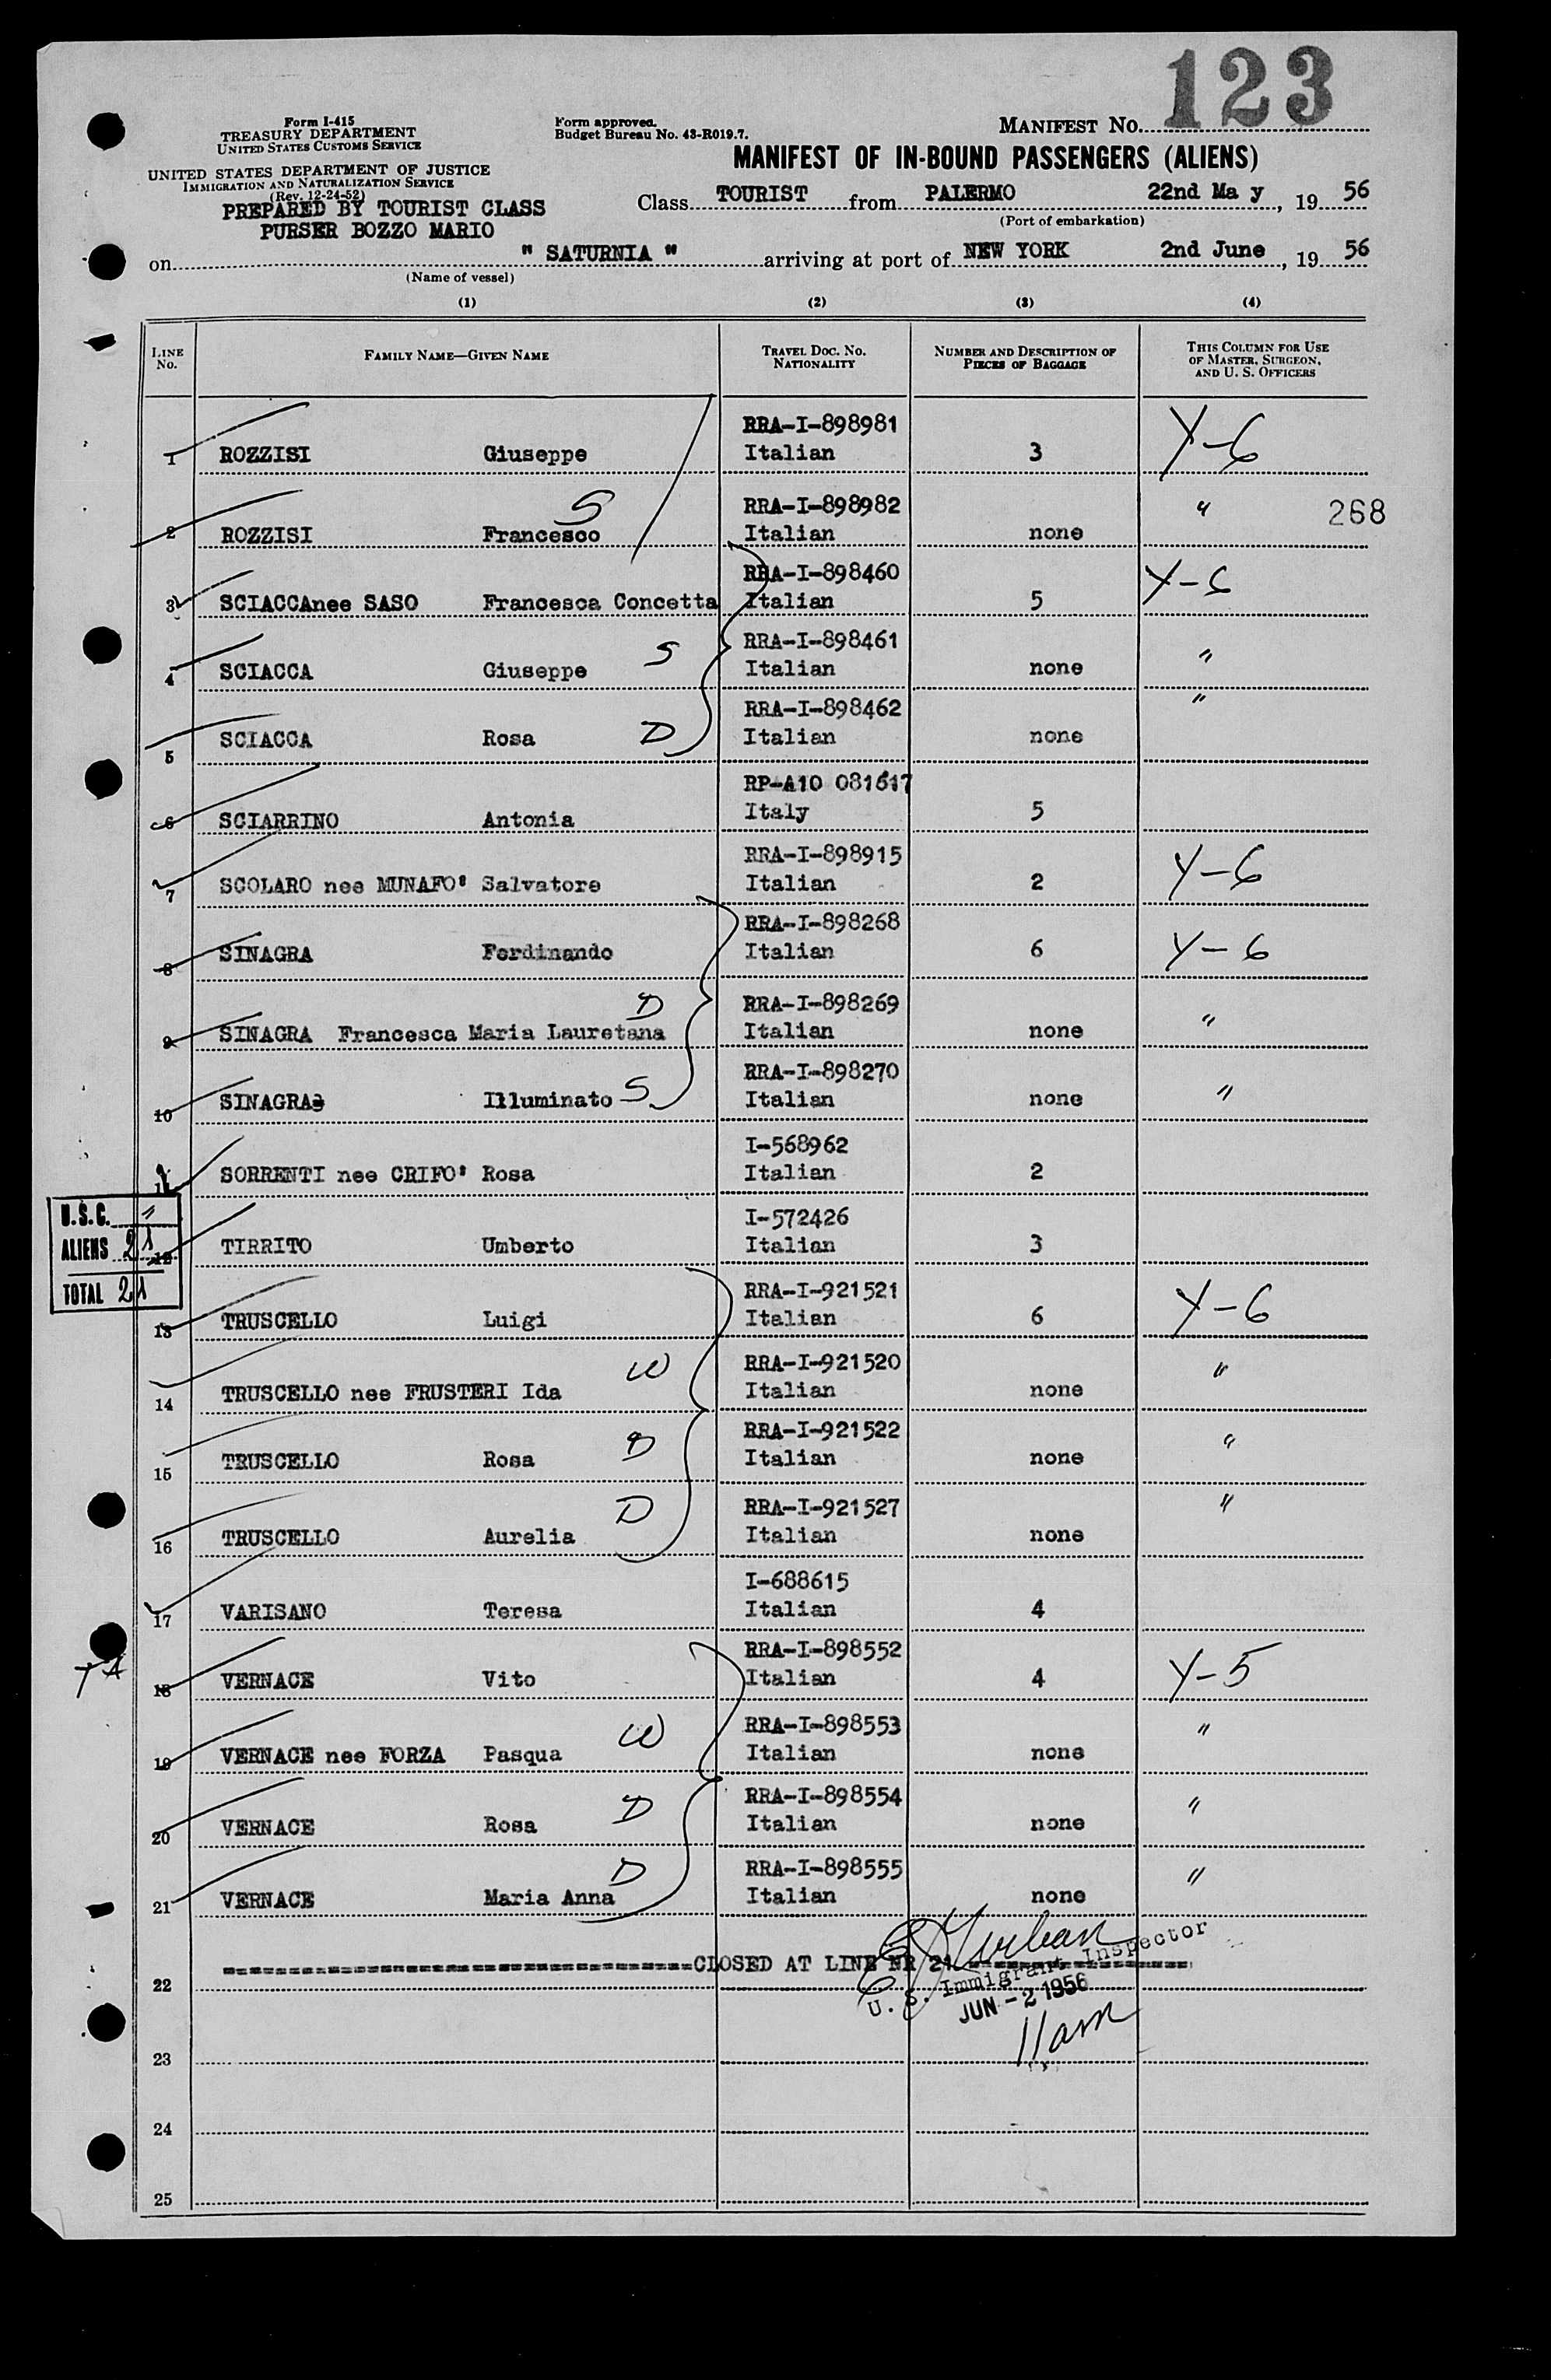 123
Form I-415
TREASURY DEPARTMENT
UNITED STATES CUSTOMS SERVICE
Form approved.
Budget Bureau No. 43-R019.7.
MANIFEST NO.
MANIFEST OF IN-BOUND PASSENGERS (ALIENS)
UNITED STATES DEPARTMENT OF JUSTICE
IMMIGRATION AND NATURALIZATION SERVICE
(Rev. 12-24-52)
PREPARED BY TOURIST CLASS
PURSER BOZZO MARIO
Class TOURIST from PALERMO 22nd Ma y, 19 56
(Port of embarkation)
on " SATURNIA " arriving at port of NEW YORK 2nd June, 19 56
(Name of vessel)
(1) (2) (3) (4)
LINE No. FAMILY NAME—GIVEN NAME TRAVEL DOC. NO. NATIONALITY NUMBER AND DESCRIPTION OF PIECES OF BAGGAGE THIS COLUMN FOR USE OF MASTER, SURGEON, AND U. S. OFFICERS
RRA-I-898981
1 ROZZISI Giuseppe Italian 3 Y-6
S RRA-I-898982 " 268
2 ROZZISI Francesco Italian none
RRA-I-898460
3 SCIACCAnee SASO Francesca Concetta Italian 5 Y-6
RRA-I-898461
4 SCIACCA Giuseppe S Italian none "
RRA-I-898462 "
5 SCIACCA Rosa D Italian none
RP-A10 081617
6 SCIARRINO Antonia Italy 5
RRA-I-898915
7 SCOLARO nee MUNAFO' Salvatore Italian 2 Y-6
RRA-I-898268
8 SINAGRA Ferdinando Italian 6 Y-6
D RRA-I-898269
9 SINAGRA Francesca Maria Lauretana Italian none "
RRA-I-898270
10 SINAGRAa Illuminato S Italian none "
I-568962
11 SORRENTI nee CRIFO' Rosa Italian 2
U.S.C. "
ALIENS 21
TOTAL 21
I-572426
12 TIRRITO Umberto Italian 3
RRA-I-921521
13 TRUSCELLO Luigi Italian 6 Y-6
W RRA-I-921520 "
14 TRUSCELLO nee FRUSTERI Ida Italian none
RRA-I-921522 "
15 TRUSCELLO Rosa D Italian none
D RRA-I-921527 "
16 TRUSCELLO Aurelia Italian none
I-688615
17 VARISANO Teresa Italian 4
RRA-I-898552
TA 18 VERNACE Vito Italian 4 Y-5
W RRA-I-898553 "
19 VERNACE nee FORZA Pasqua Italian none
D RRA-I-898554 "
20 VERNACE Rosa Italian none
D RRA-I-898555 "
21 VERNACE Maria Anna Italian none
22 CLOSED AT LINE NR 21
U. S. Immigrant Inspector
JUN - 2 1956
11am
23
24
25